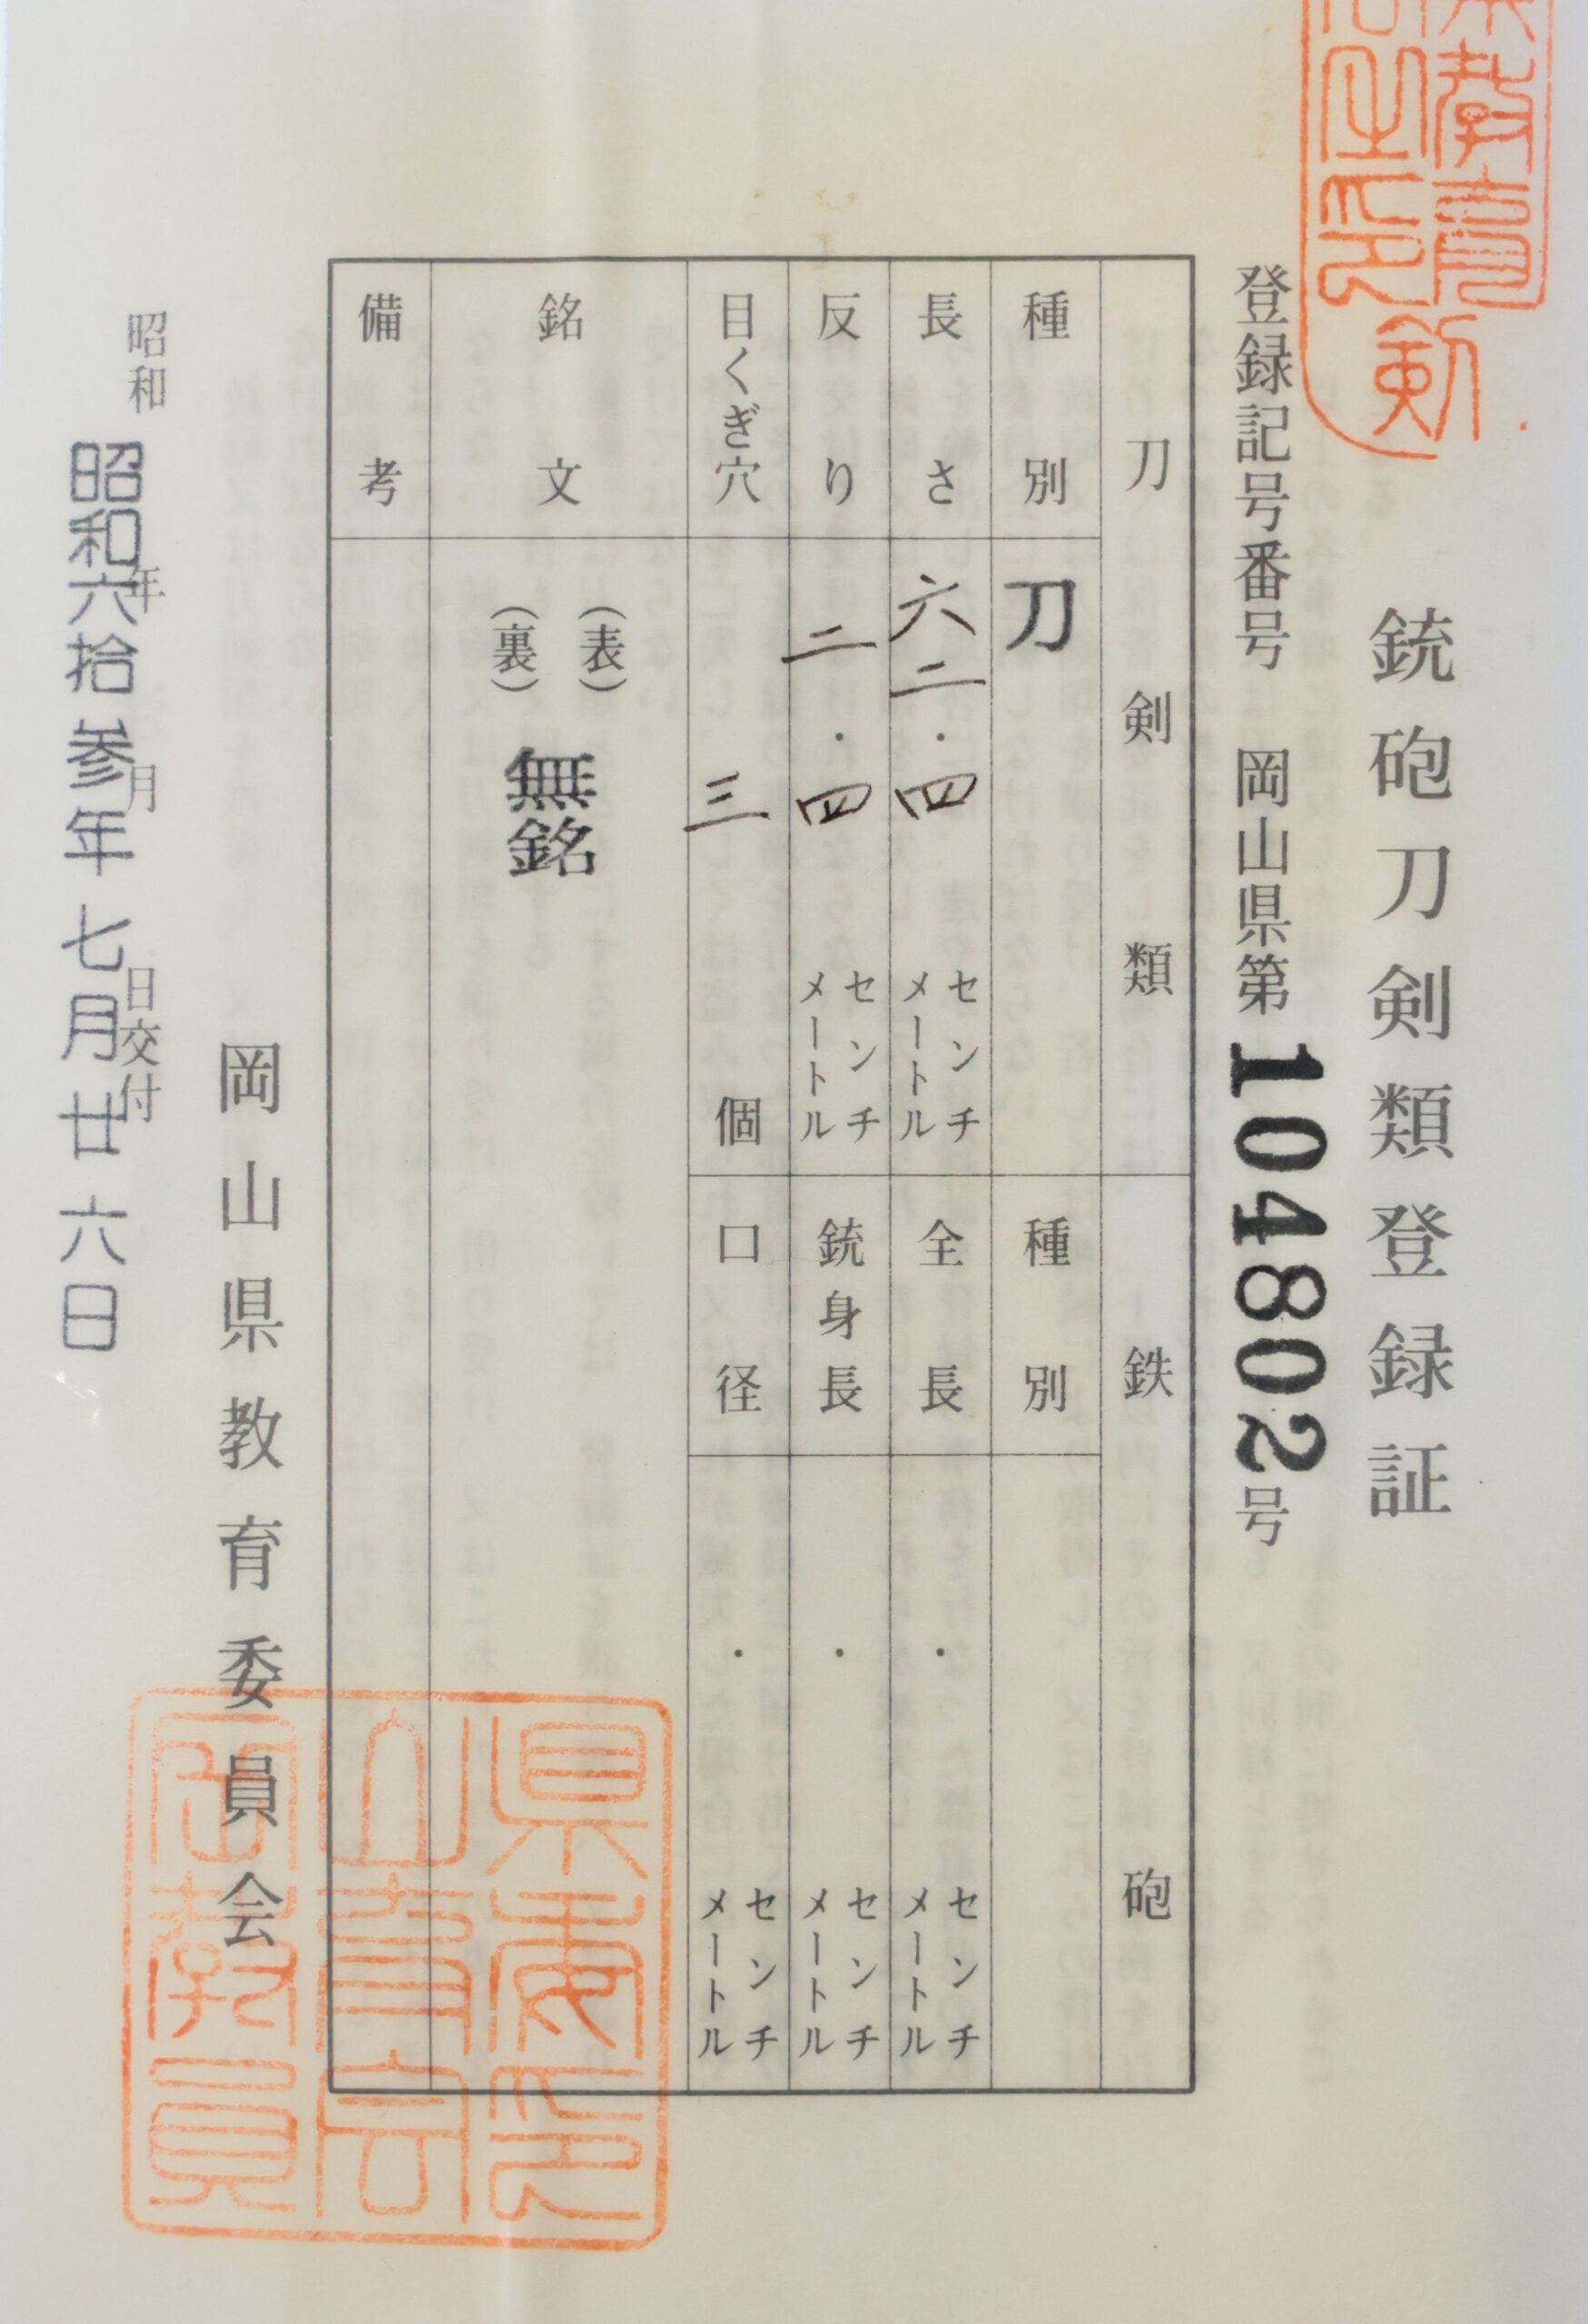 銃砲刀剣類登録証
登録記号番号 岡山県第104802号
刀剣類
種別 刀
長さ 六二.四 センチメートル
反り 二.四 センチメートル
目くぎ穴 三 個
鉄砲
種別
全長 . センチメートル
銃身長 . センチメートル
口径 . センチメートル
銘文 (表)
(裏)
無銘
備考
岡山県教育委員会
昭和 年 月 日交付
昭和六拾参年七月廿六日
教育
之印
剣
岡山県
教育委
員会印